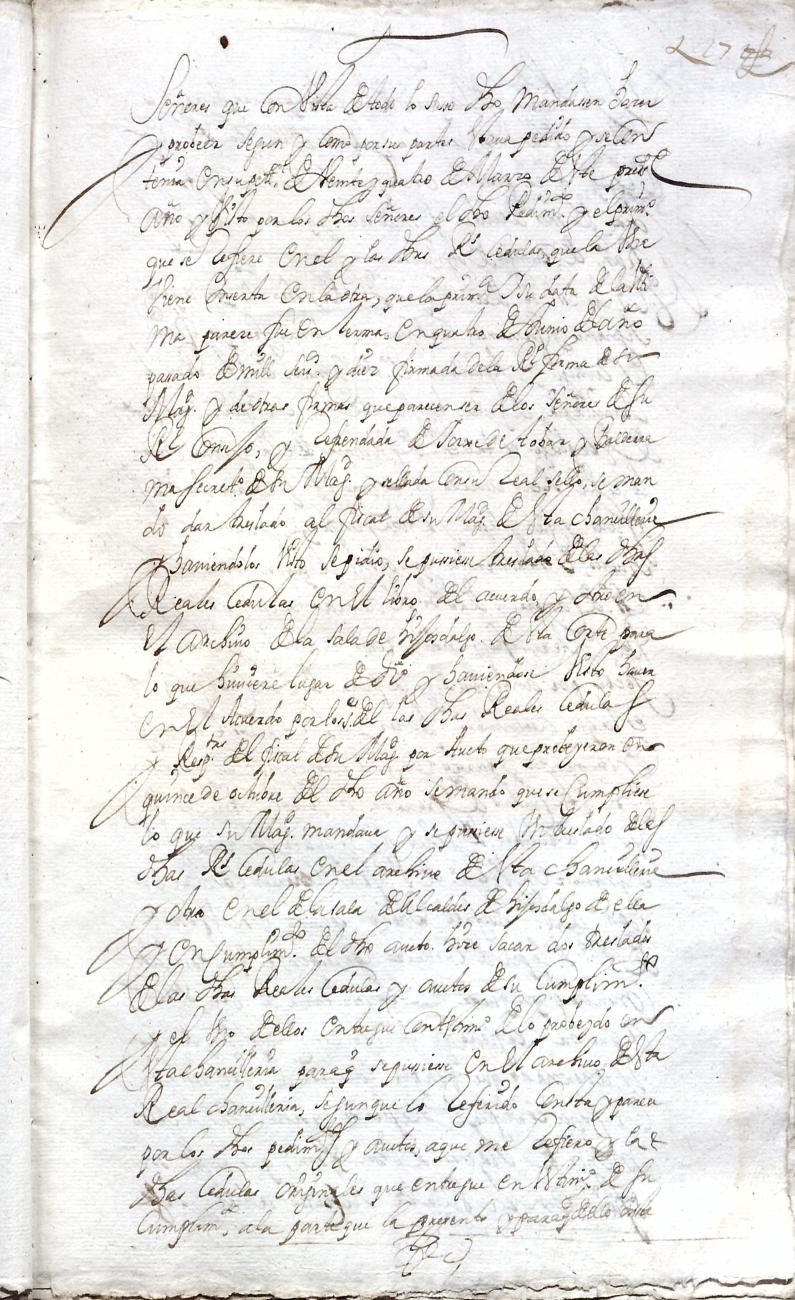 Señores que con Vista de todo lo suso dho Mandasen hacer
y probeer segun y como por sus partes estava pedido y se con
tenia en su petiⁿ de Veinte y quatro de Marzo deste press^te
año y Visto por los dhos señores el dho Pedim^to y el prim^o
que se refiere en el y las dhas R^s cedulas, que la Una
viene inserta en la otra, que la prim^a Su data de la ulti
ma parece fue en lerma, en quatro de Junio del año
pasado de mill seis^s y diez firmada de la R^l firma de Su
Mag^d y de otras firmas que parecen ser de los Señores de su
R^l Consejo, y refrendada de Jorxe de tobar y Balderra
ma Secret^o de Su Mag^d y sellada con su real sello, se man
do dar traslado al fiscal de su Mag^d desta chancilleria
y haviendolos Visto se pidio, se pusiese traslado de las dhas
Reales Cedulas en El libro del acuerdo, y otro en
El archivo de la sala de hijosdalgo desta Corte para
lo que huviere lugar de dr^o y haviendose Visto
en El Acuerdo por los del las dhas Reales Cedulas
y Resp^tas del fiscal de Su Mag^d por Aucto que probeyeron en
quince de octubre del dho año se mando que se Cumpliese
lo que su Mag^d mandava y se pusiese Un traslado de las
dhas R^s Cedulas en el archivo desta chancilleria
y otro en el de la sala de Alcaldes de hijosdalgo de ella
y en Cumplim^to del dho aucto hice sacar dos traslados
de las dhas Reales Cedulas y auctos de su Cumplim^to
y el Uno dellos entregue con testim^o de lo probeydo en
esta chancilleria para q se pusiese en El archivo desta
Real chancilleria, segun que lo referido consta y parece
por los dhos pedim^tos y auctos, a que me refiero y las
dhas Cedulas originales que entregue con testim^o de su
Cumplim^to a la parte que la presento y para q dello conste